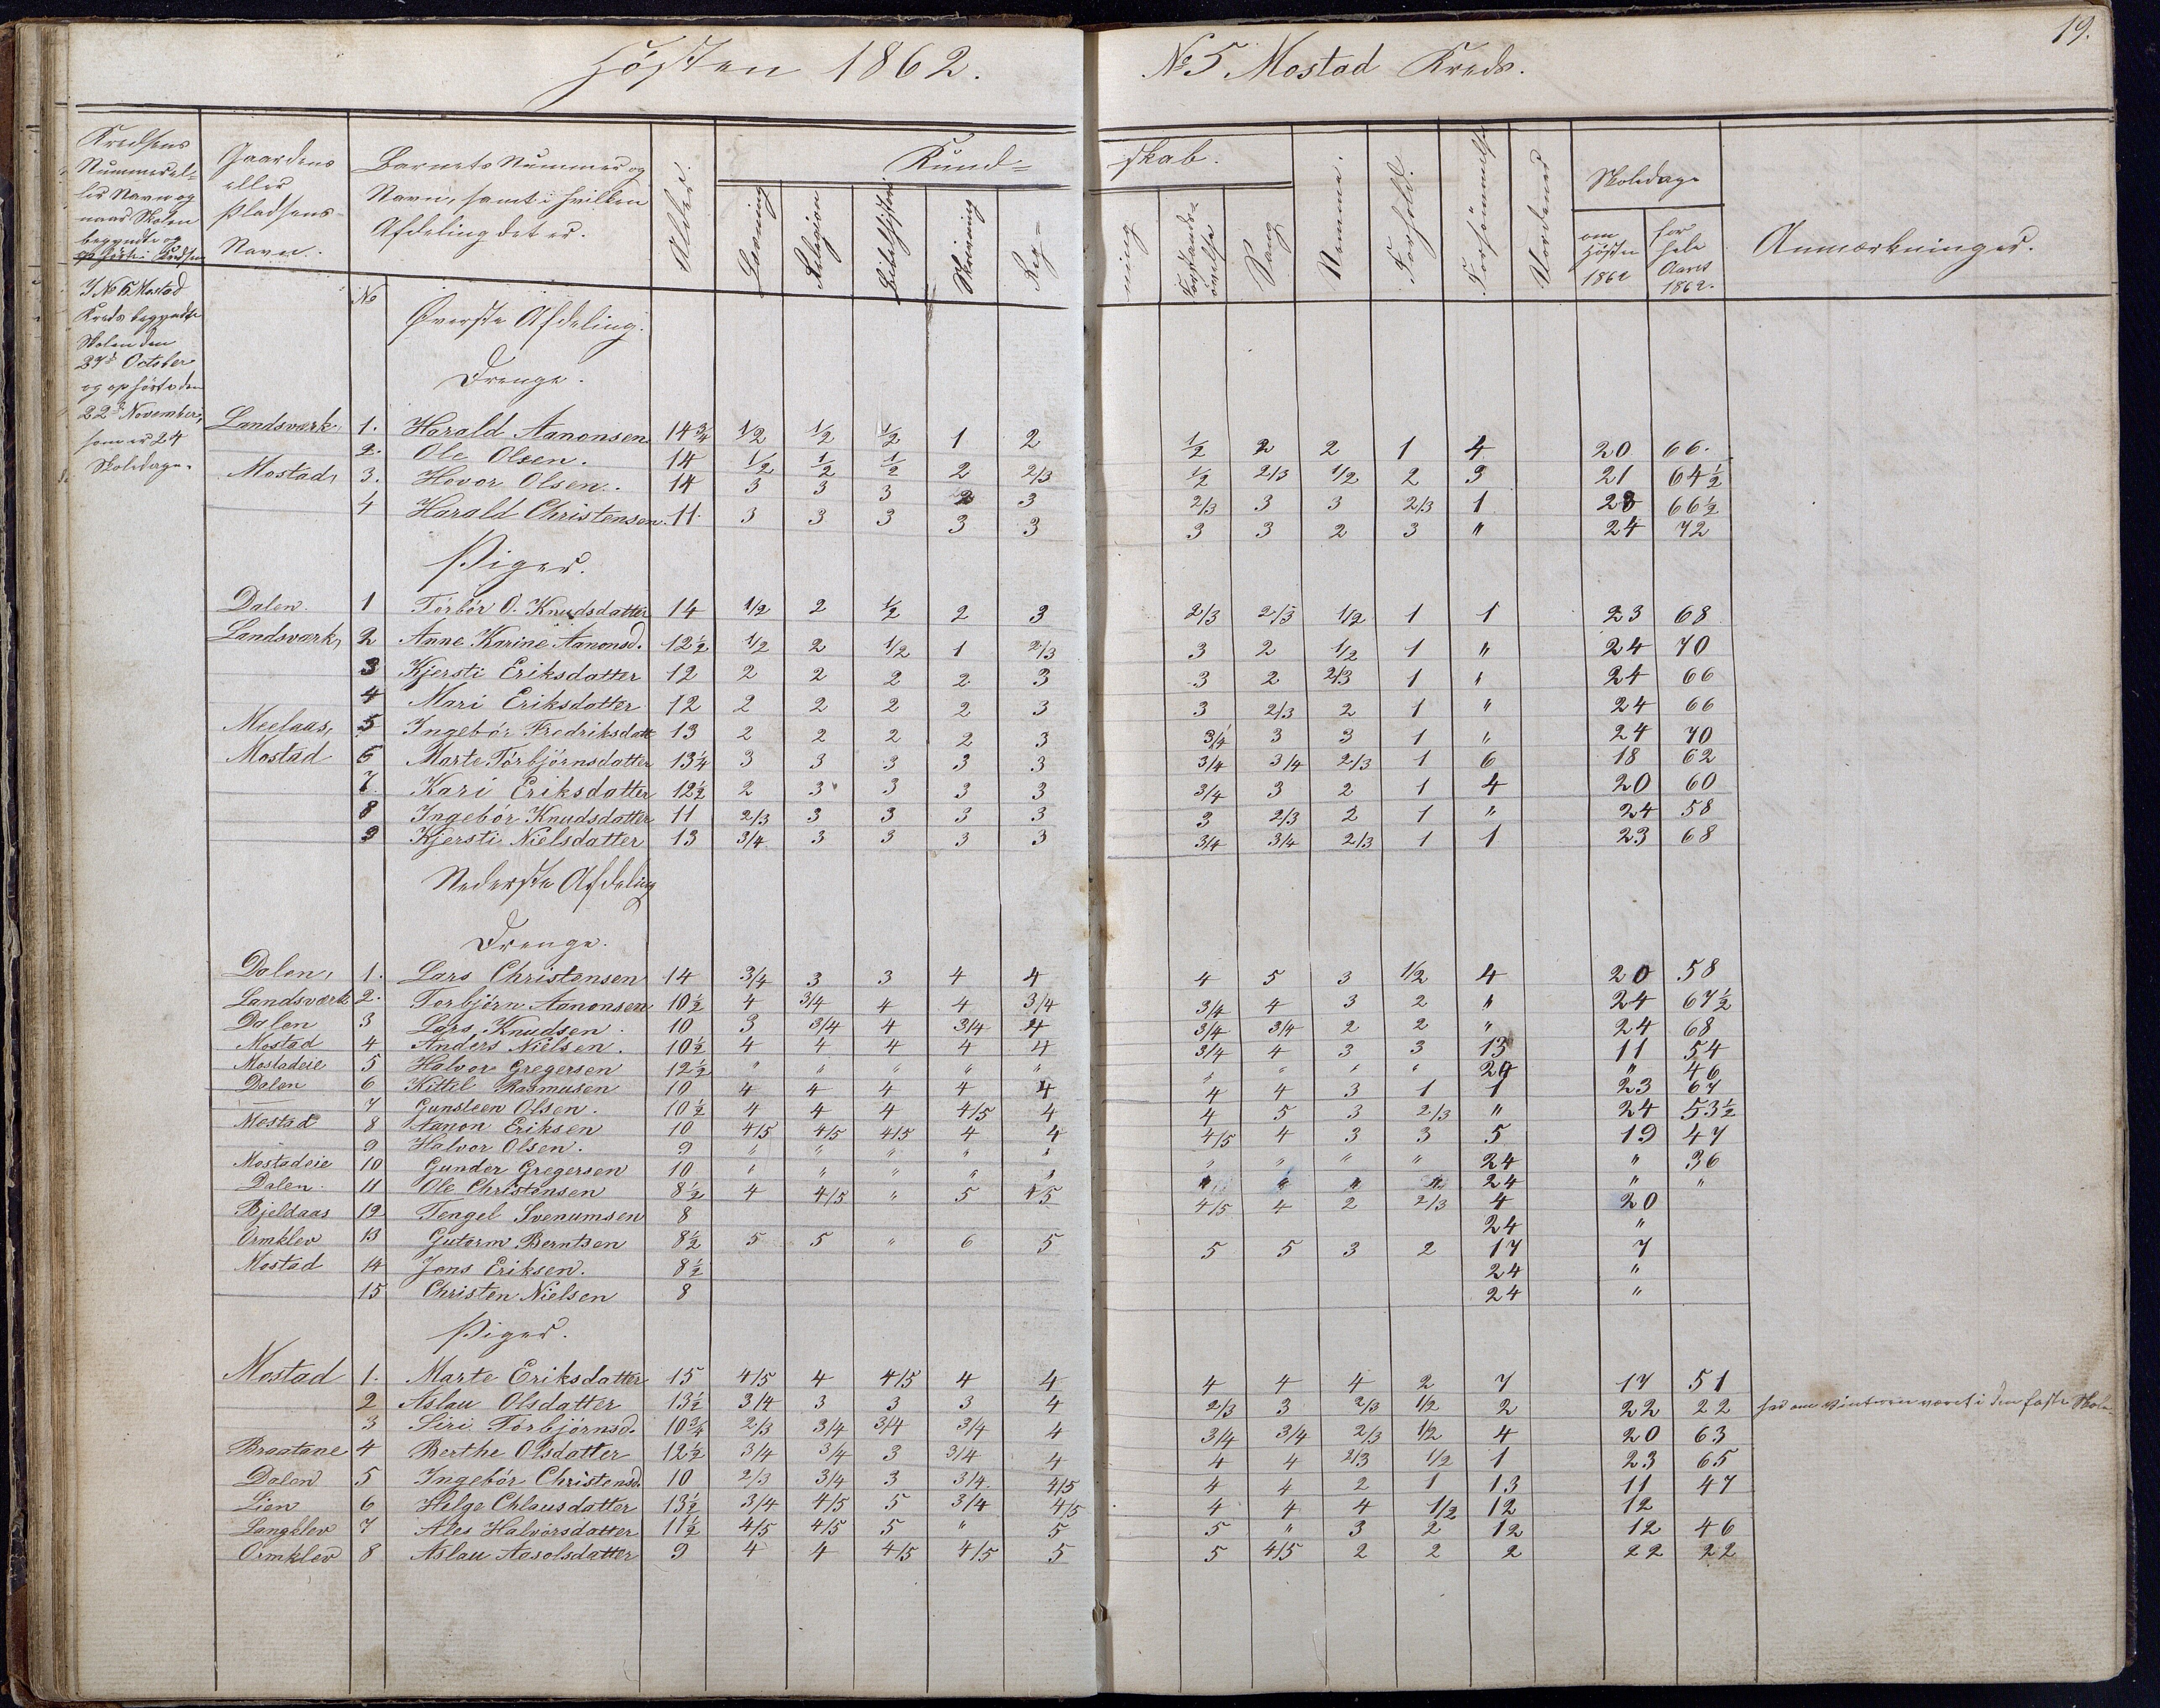 Høsten 1862. № 5 Mostad Kreds. 19.
Kredsens Nummer eller Navn og naar Skolen begyndte og ophørte i Kredsen
Gaardens eller Pladsens Navn.
Barnets Nummer og Navn, samt i hvilken Afdeling det er.
Alder.
Kundskab.
Læsning Religion Bibelhistorie Skrivning Regning Forstandsøvelse Sang
Nemme. Forhold. Forsømmelse Vordende
Skoledage
om Høsten 1862
for hele Aaret 1862.
Anmærkninger.
I No 5 Mostad
Kreds begyndte
Skolen den
27de October
og ophørte den
22de November,
som er 24
Skoledage.
№ Øverste Afdeling.
Drenge.
Landsværk, 1. Harald Aanonsen 14 3/4 1/2 1/2 1/2 1 2 1/2 2 2 1 4 20 66.
2. Ole Olsen. 14 1/2 1/2 1/2 2 2/3 1/2 2/3 1/2 2 3 21 64 1/2
Mostad, 3. Hovor Olsen. 14 3 3 3 2 3 2/3 3 3 2/3 1 23 66 1/2
4 Harald Christensen. 11 3 3 3 3 3 3 3 2 3 " 24 72
Piger.
Dalen 1 Torbør O. Knudsdatter 14 1/2 2 1/2 2 3 2/3 2/3 1/2 1 1 23 68
Landsværk, 2 Anne Karine Aanonsd. 12 1/2 1/2 2 1/2 1 2/3 3 2 1/2 1 " 24 70
3 Kjersti Eriksdatter 12 2 2 2 2 3 3 2 2/3 1 " 24 66
4 Mari Eriksdatter 12 2 2 2 2 3 3 2/3 2 1 " 24 66
Meelaas, 5 Ingebør Fredriksdatt 13 2 2 2 2 3 3/4 3 3 1 " 24 70
Mostad 6 Marte Torbjørnsdatter 13 1/4 3 3 3 3 3 3/4 3/4 2/3 1 6 18 62
7. Kari Eriksdatter 12 1/2 2 3 3 3 3 3/4 3 2 1 4 20 60
8 Ingebør Knudsdatter 11 2/3 3 3 3 3 3 2/3 2 1 " 24 58
9 Kjersti Nielsdatter 13 3/4 3 3 3 3 3/4 3/4 2/3 1 1 23 68
Nederste Afdeling
Drenge.
Dalen, 1. Lars Christensen 14 3/4 3 3 4 4 4 5 3 1/2 4 20 58
Landsværk 2. Torbjørn Aanonsen 10 1/2 4 3/4 4 4 3/4 3/4 4 3 2 " 24 67 1/2
Dalen 3 Lars Knudsen. 10 3 3/4 4 3/4 4 3/4 3/4 2 2 " 24 68
Mostad 4 Anders Nielsen. 10 1/2 4 4 4 4 4 3/4 4 3 3 13 11 54
Mostadeie 5 Halvor Gregersen 12 1/2 " " " " " " " " " 24 " 46
Dalen 6 Kittil Rasmusen 10 4 4 4 4 4 4 4 3 1 1 23 67
7 Gunsteen Olsen. 10 1/2 4 4 4 4/5 4 4 5 3 2/3 " 24 53 1/2
Mostad 8 Aanon Eriksen 10 4/5 4/5 4/5 4 4 4/5 4 3 3 5 19 47
9 Halvor Olsen. 9 " " " " " " " " " 24 " 36
Mostadeie 10 Gunder Gregersen 10 " " " " " " " " " 24 " "
Dalen 11 Ole Christensen 8 1/2 4 4/5 " 5 4/5 4/5 4 2 2/3 4 20
Bjeldaas 12 Tengel Svenumsen 8 24 "
Ormklev 13 Gutorm Berntsen 8 1/2 5 5 " 6 5 5 5 3 2 17 7
Mostad 14 Jens Eriksen. 8 1/2 24 "
15 Christen Nielsen 8 24 "
Piger.
Mostad 1. Marte Eriksdatter 15 4/5 4 4/5 4 4 4 4 4 2 7 17 51
2 Aslau Olsdatter 13 1/2 3/4 3 3 3 4 2/3 3 2/3 1/2 2 22 22 har om Vinteren været i den faste Skole
3 Siri Torbjørnsd. 10 3/4 2/3 3/4 3/4 3/4 4 3/4 3/4 2/3 1/2 4 20 63
Braatane 4 Berthe Olsdatter 12 1/2 3/4 3/4 3 3/4 4 4 4 2/3 1/2 1 23 65
Dalen 5 Ingebør Christensd. 10 2/3 3/4 3 3/4 4/5 4 4 2 1 13 11 47
Lien 6 Helge Chlausdatter 13 1/2 3/4 4/5 5 3/4 4/5 4 4 4 1/2 12 12
Langklev 7 Ales Halvorsdatter 11 1/2 4/5 4/5 5 " 5 5 " 3 2 12 12 46
Ormklev 8 Aslau Aasolsdatter 9 4 4 4/5 4/5 5 5 4/5 2 2 2 22 22